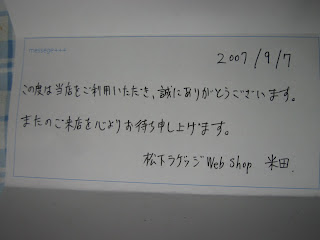 message+++
2007/9/7
この度は当店をご利用いただき、誠にありがとうございます。
またのご来店を心よりお待ち申し上げます。
松下ラゲッジ Web Shop 米田.